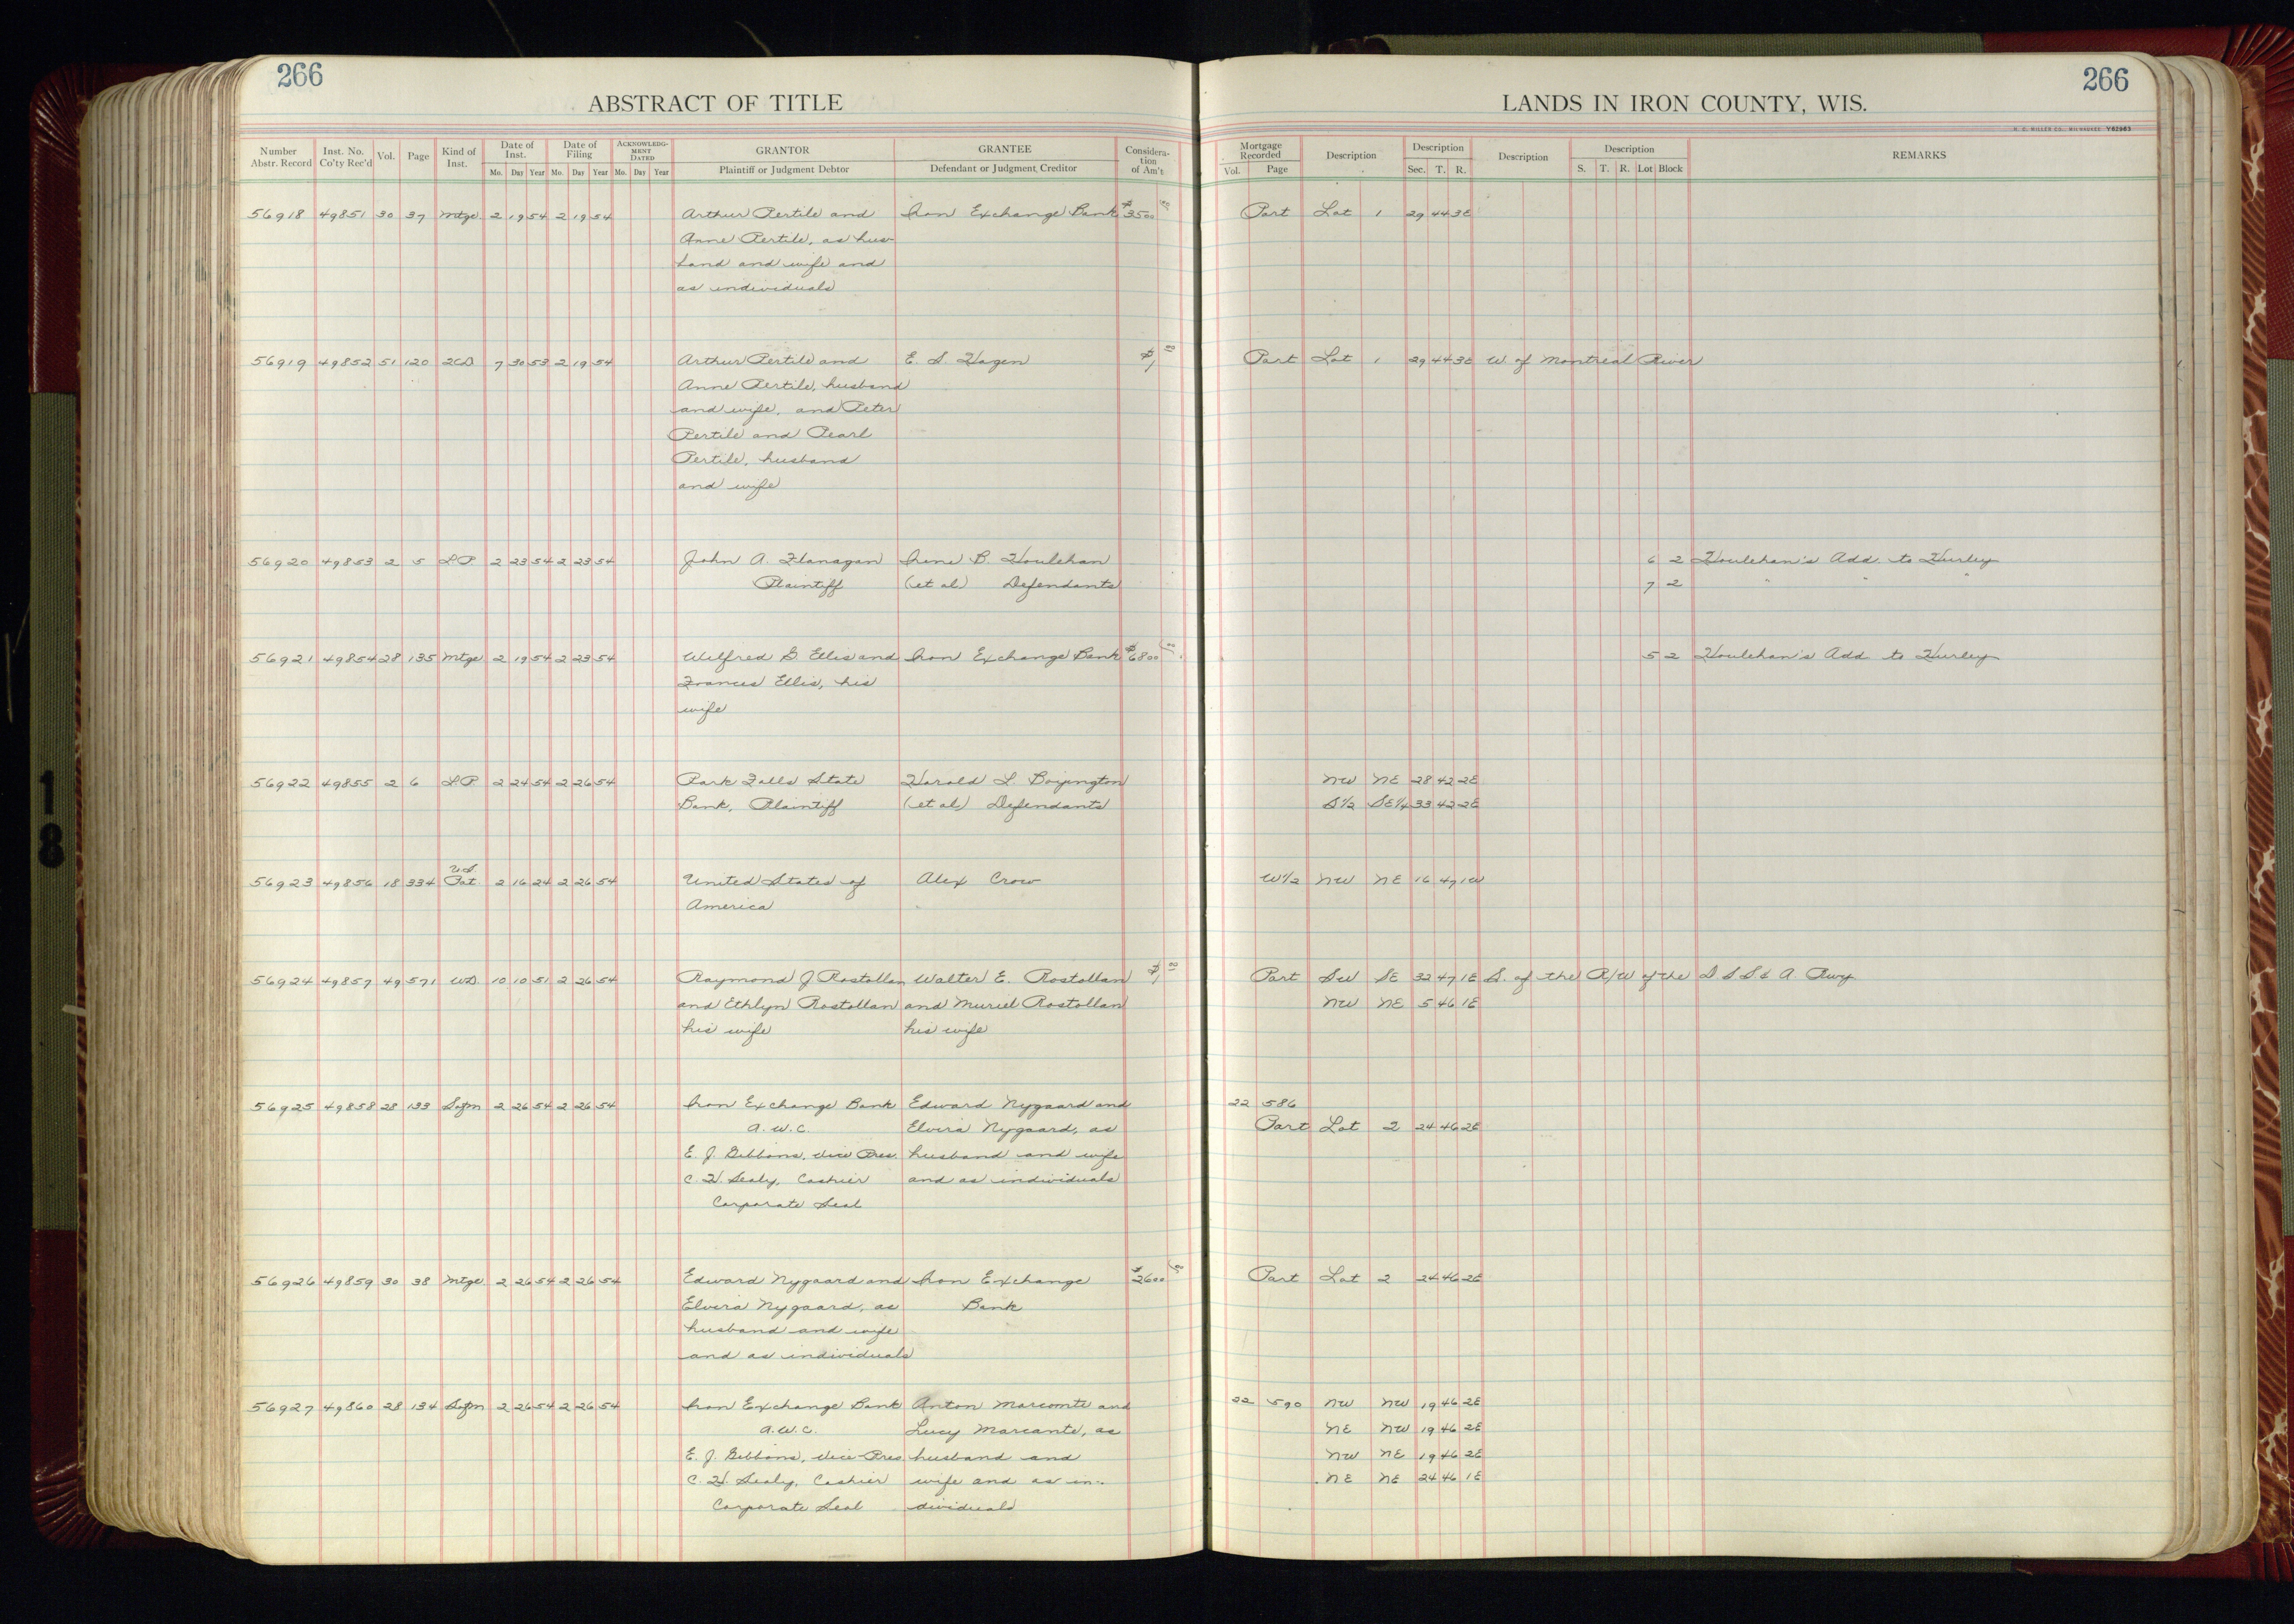 266
ABSTRACT OF TITLE
LANDS IN IRON COUNTY, WIS.
266
H. C. MILLER CO., MILWAUKEE Y62963
Number Abstr. Record | Inst. No. Co'ty Rec'd | Vol. | Page | Kind of Inst. | Date of Inst. Mo. Day Year | Date of Filing Mo. Day Year | ACKNOWLEDGMENT DATED Mo. Day Year | GRANTOR Plaintiff or Judgment Debtor | GRANTEE Defendant or Judgment Creditor | Consideration of Am't | Mortgage Recorded Vol. Page | Description | Description Sec. T. R. | Description | Description S. T. R. Lot Block | REMARKS
56918 49851 30 37 Mtge 2 19 54 2 19 54 Arthur Pertile and Iron Exchange Bank $3500 Part Lot 1 29 44 3E
Anne Pertile, as hus-
band and wife and
as individuals
56919 49852 51 120 2CD 7 30 53 2 19 54 Arthur Pertile and E. S. Hagen $1 00 Part Lot 1 29 44 3E W. of Montreal River
Anne Pertile, husband
and wife, and Peter
Pertile and Pearl
Pertile, husband
and wife
56920 49853 2 5 LP 2 23 54 2 23 54 John A. Flanagan Irene B. Houlehan 6 2 Houlehan's Add. to Hurley
Plaintiff (et al) Defendants 7 2 " " "
56921 49854 28 135 Mtge 2 19 54 2 23 54 Wilfred G. Ellis and Iron Exchange Bank $6800 5 2 Houlehan's Add to Hurley
Frances Ellis, his
wife
56922 49855 2 6 LP 2 24 54 2 26 54 Park Falls State Harold L. Boyington NW NE 28 42 2E
Bank, Plaintiff (et al) Defendants S½ SE¼ 33 42 2E
U.S.
56923 49856 18 334 Pat. 2 16 24 2 26 54 United States of Alex Crow W½ NW NE 16 47 1W
America
56924 49857 49 571 WD 10 10 51 2 26 54 Raymond J Rostollan Walter E. Rostollan $1 00 Part SW SE 32 47 1E S. of the R/W of the D S S & A. Rwy
and Ethlyn Rostollan and Muriel Rostollan NW NE 5 46 1E
his wife his wife
56925 49858 28 133 Safm 2 26 54 2 26 54 Iron Exchange Bank Edward Nygaard and 22 586
A.W.C. Elvira Nygaard, as Part Lot 2 24 46 2E
E. J. Gibbons, Vice Pres. husband and wife
C. H. Sealy, Cashier and as individuals
Corporate Seal
56926 49859 30 38 Mtge 2 26 54 2 26 54 Edward Nygaard and Iron Exchange $2600 Part Lot 2 24 46 2E
Elvira Nygaard, as Bank
husband and wife
and as individuals
56927 49860 28 134 Safm 2 26 54 2 26 54 Iron Exchange Bank Anton Marconte and 22 590 NW NW 19 46 2E
A.W.C. Lucy Marcante, as NE NW 19 46 2E
E. J. Gibbons, Vice Pres husband and NW NE 19 46 2E
C. H. Sealy, Cashier wife and as in- NE NE 24 46 1E
Corporate Seal dividuals
18